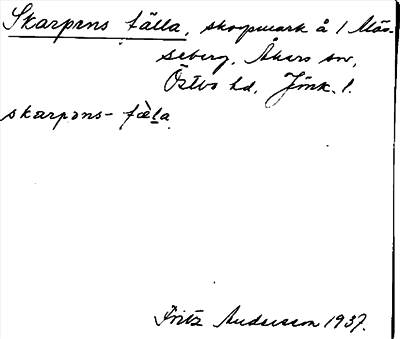 Skarpens fälla, skogsmark å 1 Mås-
seberg, Åkers sn,
Östbo hd, Jönk. l.
skarpəns- fὲla
Fritz Andersson 1937.